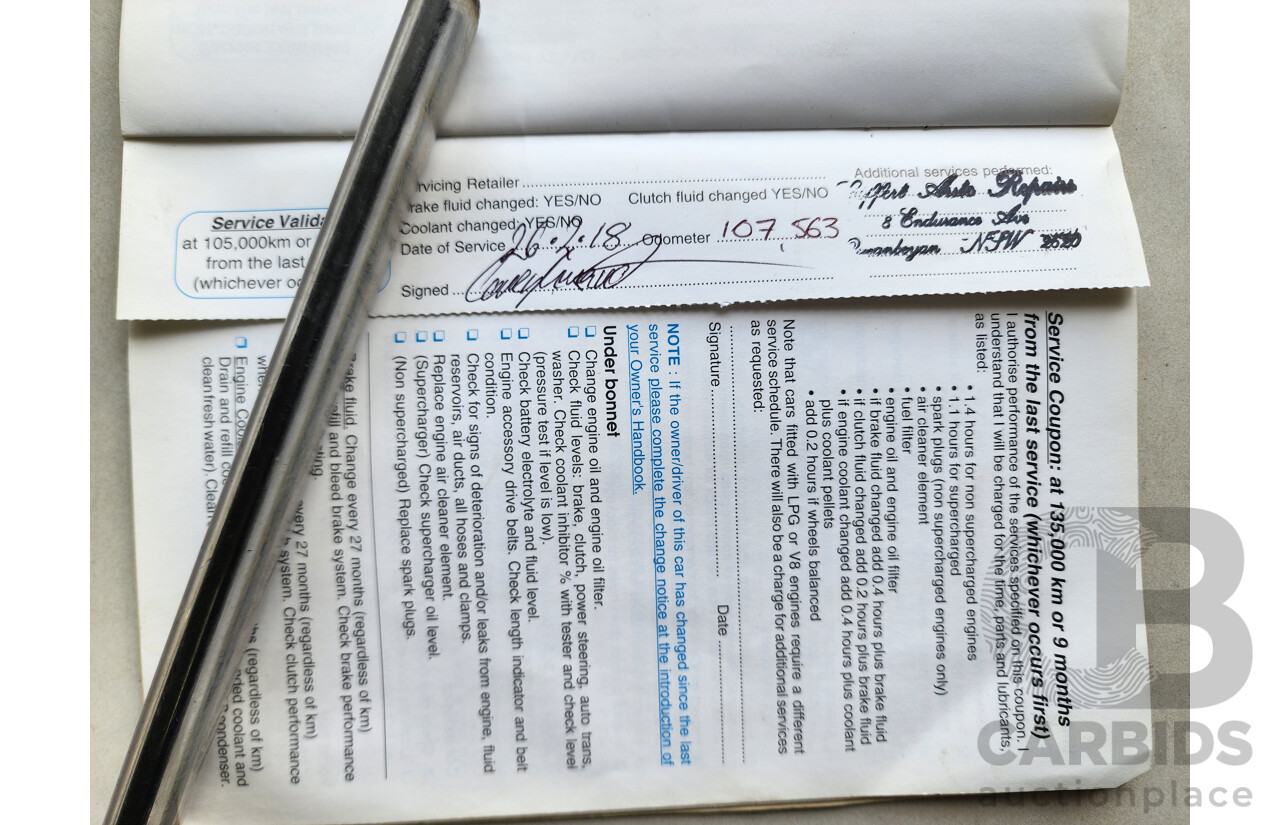 Servicing Retailer
Brake fluid changed: YES/NO Clutch fluid changed YES/NO
Coolant changed: YES/NO
Date of Service 26.2.18 Odometer 107 563
Signed
Additional services performed:
Auto Repairs
8 Endurance Ave
NSW 2620
Service Valida
at 105,000km or
from the last
(whichever oc
Service Coupon: at 135,000 km or 9 months
from the last service (whichever occurs first)
I authorise performance of the services specified on this coupon. I
understand that I will be charged for the time, parts and lubricants,
as listed:
• 1.4 hours for non supercharged engines
• 1.1 hours for supercharged
• spark plugs (non supercharged engines only)
• air cleaner element
• fuel filter
• engine oil and engine oil filter
• if brake fluid changed add 0.4 hours plus brake fluid
• if clutch fluid changed add 0.2 hours plus brake fluid
• if engine coolant changed add 0.4 hours plus coolant
plus coolant pellets
• add 0.2 hours if wheels balanced
Note that cars fitted with LPG or V8 engines require a different
service schedule. There will also be a charge for additional services
as requested:
Signature Date
NOTE : If the owner/driver of this car has changed since the last
service please complete the change notice at the introduction of
your Owner's Handbook.
Under bonnet
❑ Change engine oil and engine oil filter.
❑ Check fluid levels: brake, clutch, power steering, auto trans,
washer. Check coolant inhibitor % with tester and check level
(pressure test if level is low).
❑ Check battery electrolyte and fluid level.
❑ Engine accessory drive belts. Check length indicator and belt
condition.
❑ Check for signs of deterioration and/or leaks from engine, fluid
reservoirs, air ducts, all hoses and clamps.
❑ Replace engine air cleaner element.
❑ (Supercharger) Check supercharger oil level.
❑ (Non supercharged) Replace spark plugs.
Brake fluid. Change every 27 months (regardless of km)
refill and bleed brake system. Check brake performance
every 27 months (regardless of km)
system. Check clutch performance
when
❑ Engine Coolant (regardless of km)
Drain and refill coolant and
clean fresh water). Clean condenser.
B
CARBIDS
auctionplace